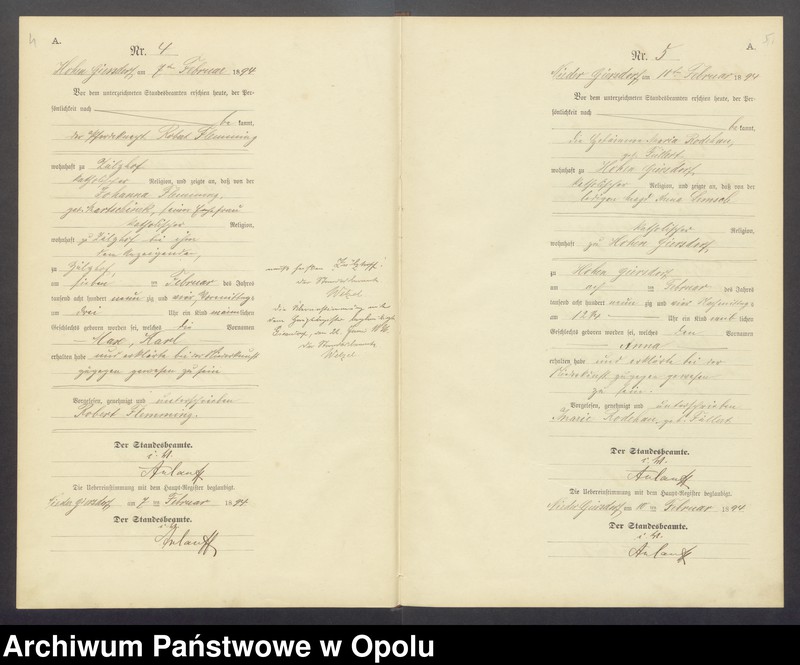 4
A.
Nr. 4
Hohen Giersdorf, am 7ten Februar 1894
Vor dem unterzeichneten Standesbeamten erschien heute, der Per-
sönlichkeit nach
be kannt,
der Pferdeknecht Robert Flemming
wohnhaft zu Zülzhof
katholischer Religion, und zeigte an, daß von der
Johanna Flemming,
geb. seine Ehefrau
katholischer Religion,
wohnhaft zu Zülzhof bei ihm
dem Anzeigenden,
zu Zülzhof,
am sieben ten Februar des Jahres
tausend acht hundert neunzig und vier Vormittags
um drei Uhr ein Kind männlichen
Geschlechts geboren worden sei, welches die Vornamen
Max, Karl
erhalten habe und erklärte bei der Niederkunft
zugegen gewesen zu sein
Vorgelesen, genehmigt und unterschrieben
Robert Flemming.
Der Standesbeamte.
i. V.
Anlauff
Die Uebereinstimmung mit dem Haupt-Register beglaubigt.
Nieder Giersdorf, am 7 ten Februar 1894
Der Standesbeamte.
i. V.
Anlauff
muß heißen
der Standesbeamte
die Übereinstimmung mit
dem Hauptregister beglaubigt
der Standesbeamte
5.
A.
Nr. 5
Nieder Giersdorf, am 11ten Februar 1894
Vor dem unterzeichneten Standesbeamten erschien heute, der Per-
sönlichkeit nach
be kannt,
die Hebamme Maria Rodehau,
geb. Füllert
wohnhaft zu Hohen Giersdorf,
katholischer Religion, und zeigte an, daß von der
ledigen Magd Anna
katholischer Religion,
wohnhaft zu Hohen Giersdorf,
zu Hohen Giersdorf,
am acht ten Februar des Jahres
tausend acht hundert neunzig und vier Nachmittags
um 12¾ Uhr ein Kind weiblichen
Geschlechts geboren worden sei, welches den Vornamen
Anna
erhalten habe und erklärte bei der
Niederkunft zugegen gewesen
zu sein.
Vorgelesen, genehmigt und unterschrieben
Marie Rodehau, geb. Füllert
Der Standesbeamte.
i. V.
Anlauff
Die Uebereinstimmung mit dem Haupt-Register beglaubigt.
Nieder Giersdorf, am 11 ten Februar 1894
Der Standesbeamte.
i. V.
Anlauff
Archiwum Państwowe w Opolu